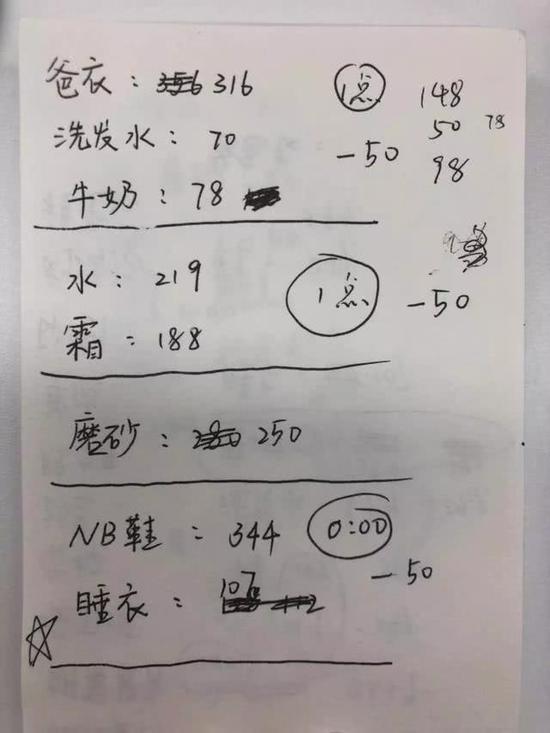 爸衣：316 1点 148
洗发水：70 -50 50 78
牛奶：78 98
水：219 1点 -50
霜：188
磨砂：250
NB鞋：344 0:00
睡衣：107 -50